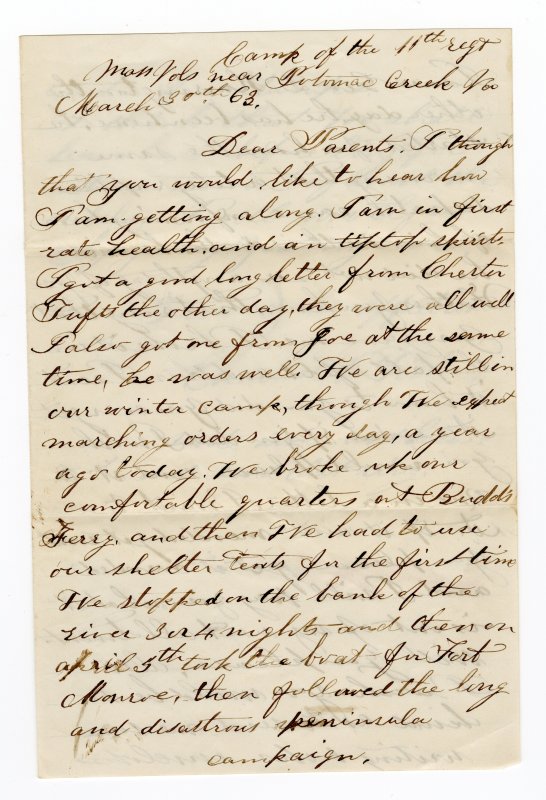 Camp of the 11th regt
Mass Vols near Potomac Creek Va
March 30th 63.
Dear Parents. I though
that you would like to hear how
I am getting along. I am in first
rate health, and in tiptop spirits.
I got a good long letter from Chester
Tufts the other day, they were all well
I also got one from Joe at the same
time, he was well. We are still in
our winter camp, though We expect
marching orders every day, a year
ago today. We broke up our
comfortable quarters at Budds
Ferry, and then We had to use
our shelter tents for the first time
We stopped on the bank of the
river 3 or 4 nights and then on
april 5th took the boat for Fort
Monroe, then followed the long
and disastrous peninsula
campaign.